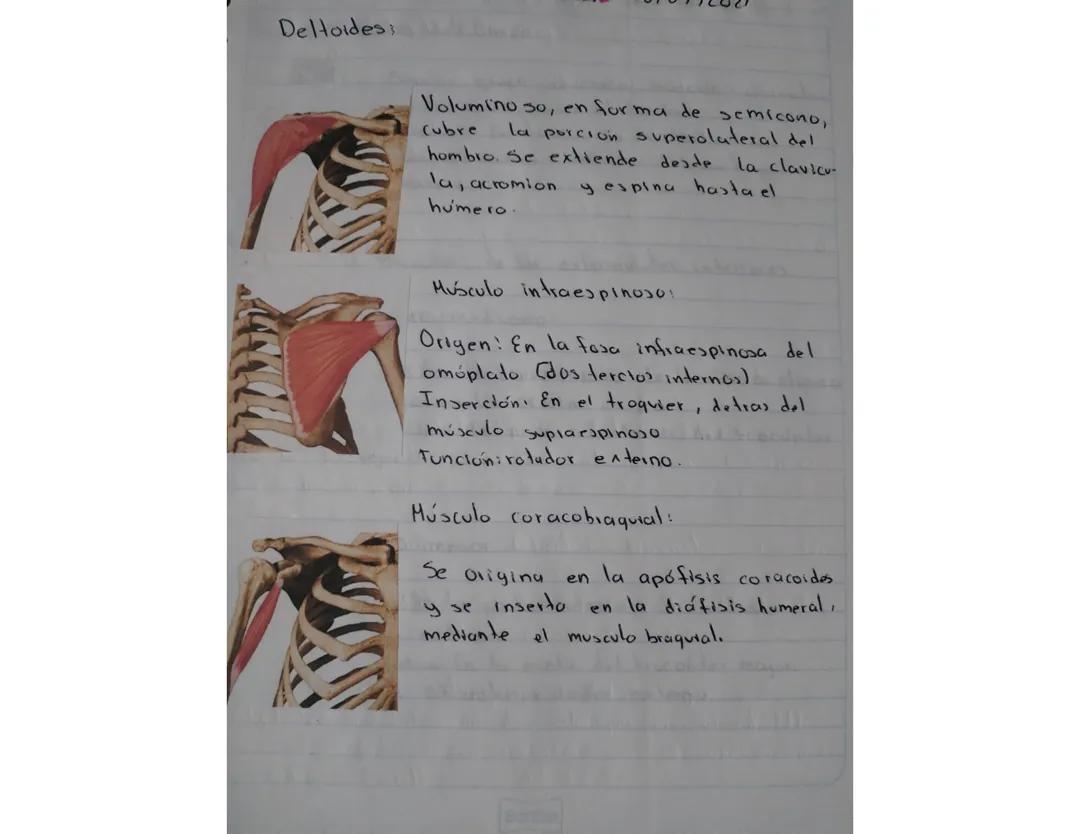 Deltoides:
Volumino so, en forma de semicono,
cubre la porción superolateral del
hombro. Se extiende desde la clavicu-
la, acromion y espina hasta el
húmero.
Músculo intraespinoso:
Origen: En la fosa infraespinosa del
omóplato (dos tercios internos)
Inserción: En el troquier, detras del
músculo supraespinoso
Función: rotador externo.
Músculo coracobraquial:
Se origina en la apófisis coracoides
y se inserta en la diáfisis humeral,
mediante el musculo braquial.